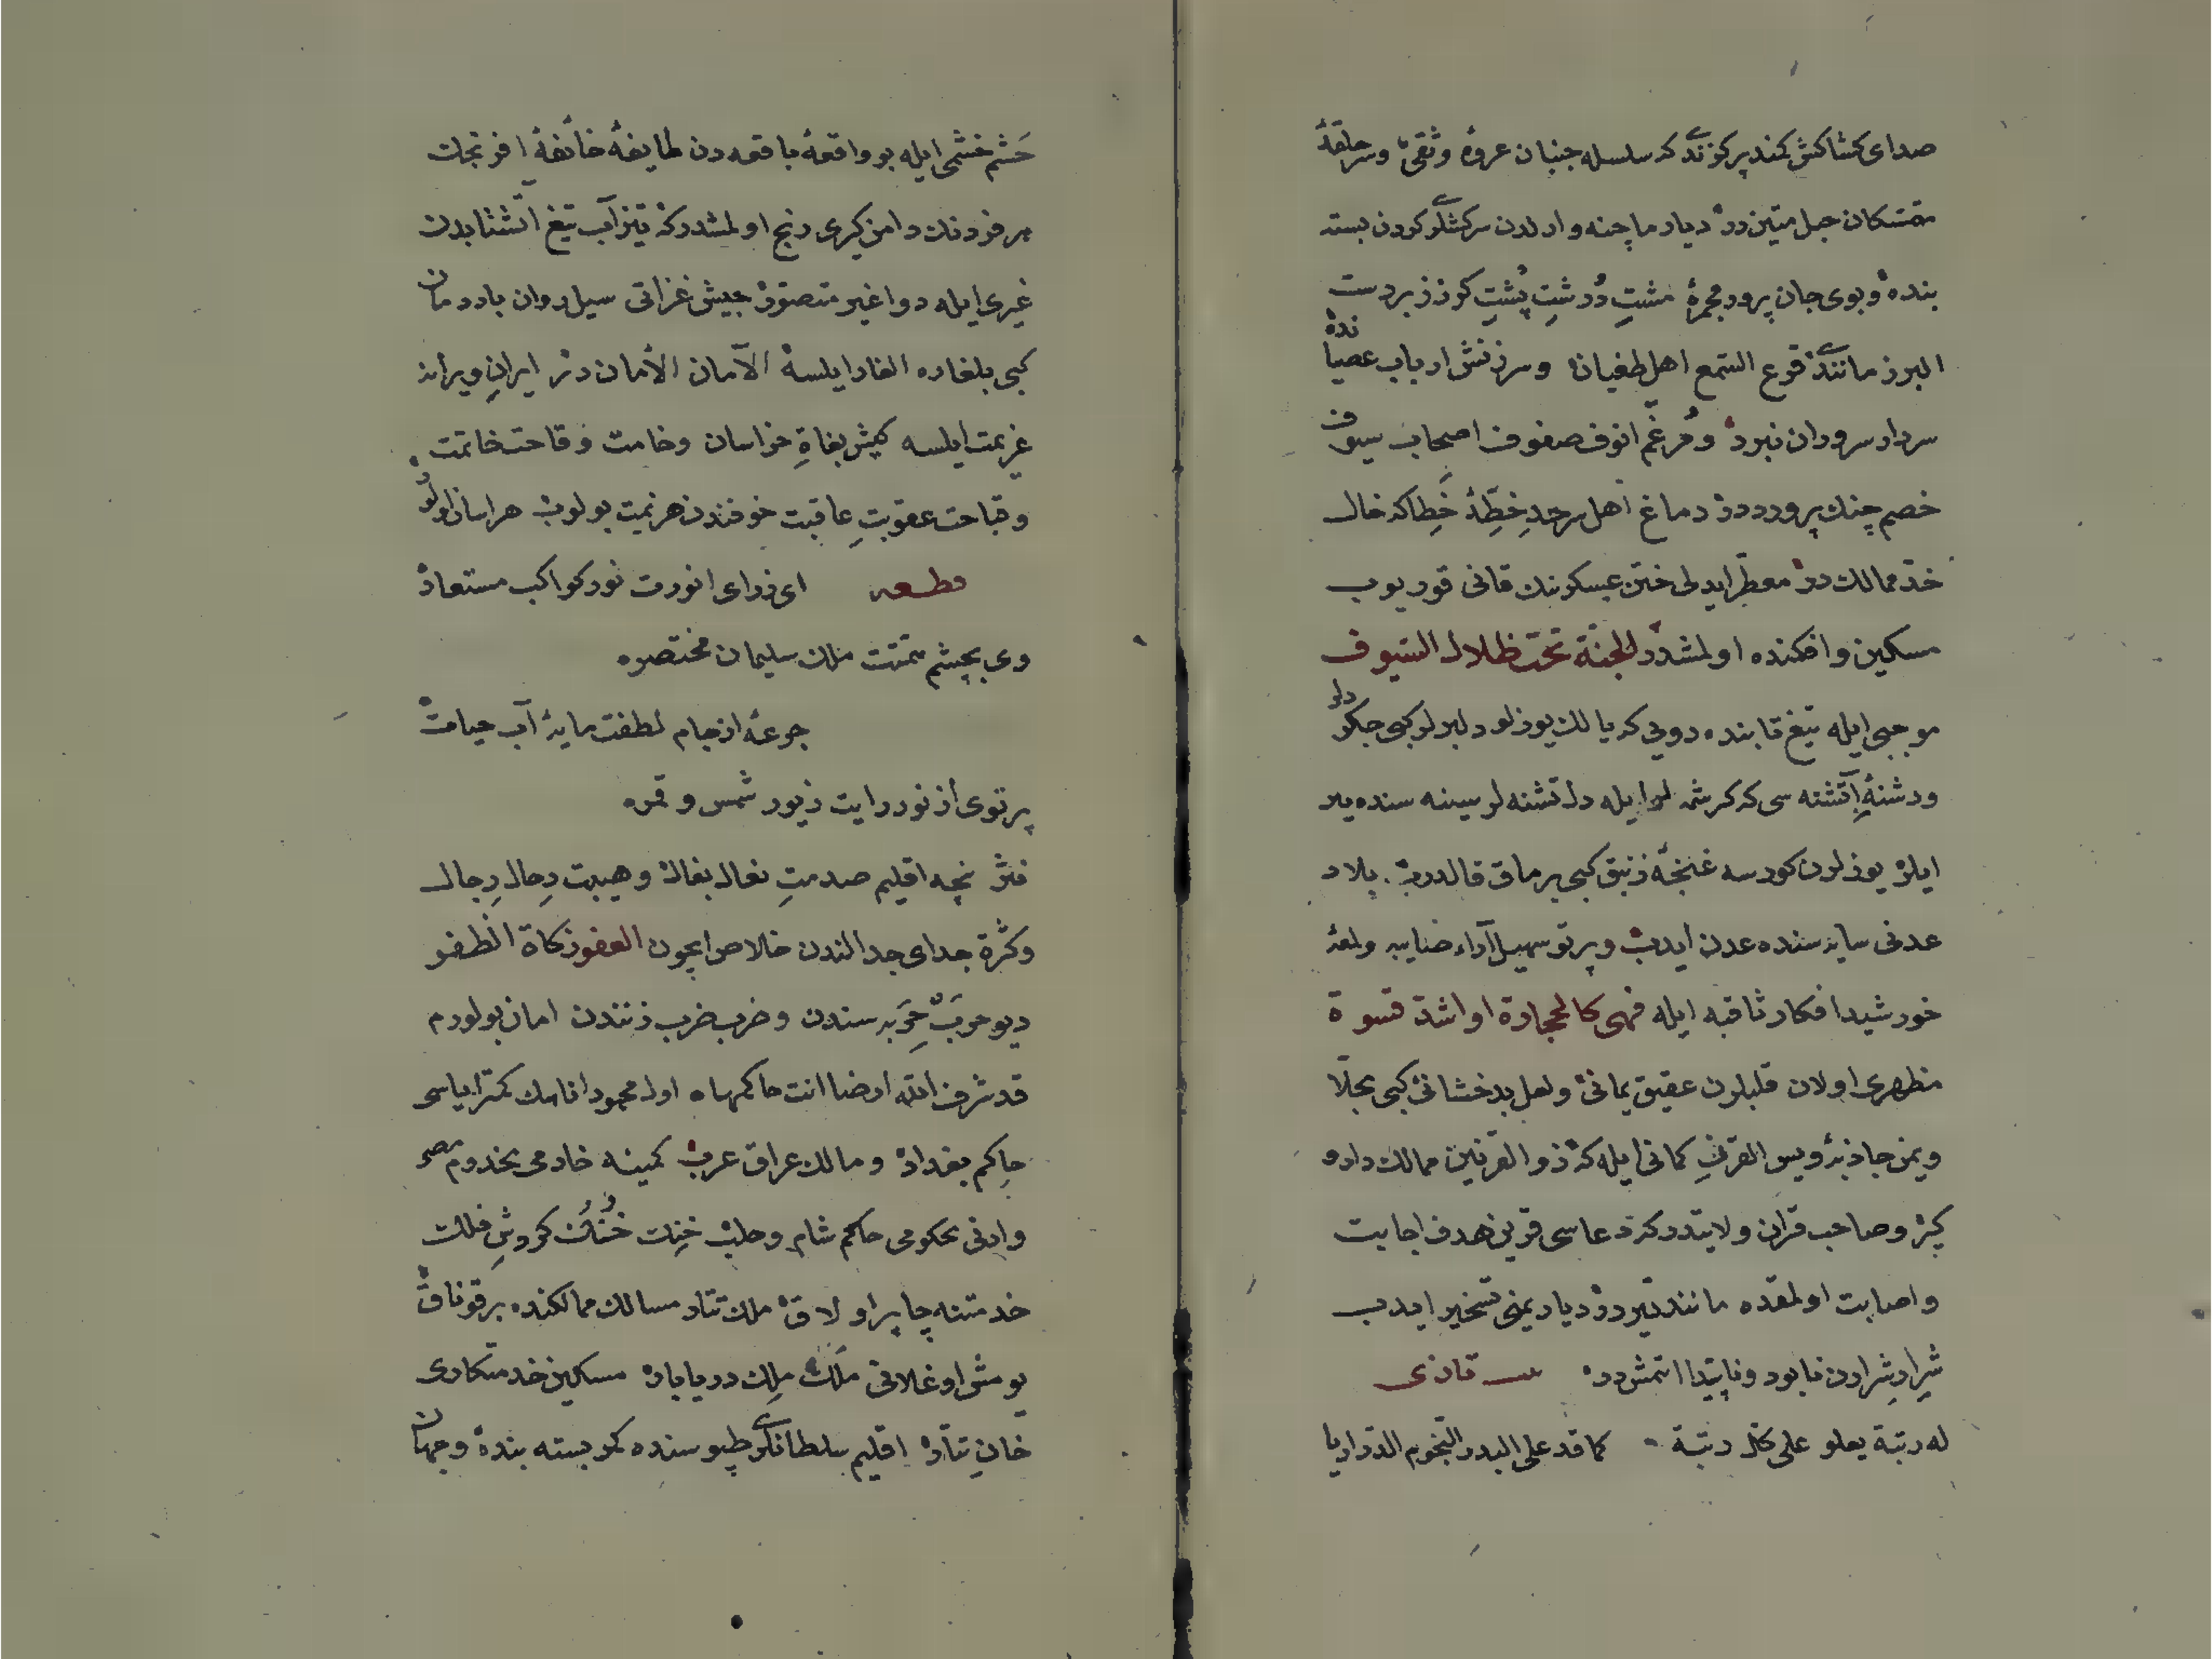 صدای کشاکش کمند پر کوزندکه سلسله جنبان عروهٔ وثقی وسرحلقهٔ
متمسکان حبل متین در دیار ماچینه وارلدن سرکشلر کردن بسته
بنده وبوی جان پرور مجمرهٔ مشتِ دُرشتِ پُشتِ کرز زبردست
البرز مانندز قرع السمع اهل طغیان وسرزنش ارباب عصیاندە
سردار سروران نبرد ومُرغّم انوف صفوف اصحاب سیوف
خصم چنك پروردر دماغ اهل سرحدِ خطِّهٔ خَطاکه خال
خدّ ممالك در معطر ایدلی ختن عسکرینك قانی قوریوب
مسکین وافکنده اولمشدر الجنة تحت ظلال السیوف
موجبی ایله تیغ قابنده دویی که یالك یوزلو دلبرلر کبی جکرلر
ودشنهٔ آتشته سی که کرشمه لر ایله دل تشنه لر سینه سنده یر
ایلر یوزلرن کورسه غنچهٔ زنبق کبی برماق قالدرب بلاد
عدنی سایه سنده عدن ایدب وپرتو سهیل آراء صنایبه ولمعهٔ
خورشید افکار ثاقبه ایله فهی کالحجارة او اشد قسوة
مظهری اولان قلبلرن عقیق یمانی ولعل بدخشانی کبی مجلّا
ویمن جاذبهٔ ویس القرنِ کمانی ایله که ذو القرنین ممالك دارو
کیر وصاحب قران ولایتدر که دعاسی قرین هدف اجابت
واصابت اولمقده مانند تیر در دیار یمنی تسخیر ایدب
شِرار شِرارن نابود وناپیدا اتمشدر تازی
له رتبة یعلو علی کل رتبة کما قد علی البدر النجوم الدراریا
حَشم خشمی ایله بو واقعهٔ باقعه دن طایفهٔ خائفهٔ افرنجك
هر فردنك دامن کیری رنج اولمشدرکه تیزآب تیغ آتشتابدن
غیری ایله دوا غیر متصوّر جیش غزاتی سیل روان باد دمان
کبی بلغاره الغار ایلسه الآمان الأمان در ایرانِ ویرانه
عزیمت ایلسه کمیش بغاةِ خراسان وخامت وقاحت خاتمت
وقباحت عقوبتِ عاقبت خوفندن هزیمت بولوب هراسان اولور
قطعه ای ز رای انورت نور کواکب مستعار
وی بچشم همتت ملك سلیمان مختصره
جرعهٔ از جام لطفت مایهٔ آب حیات
پرتوی از نور رایت زیور شمس وقمره
نثر نچه اقلیم صدمتِ نعال بغال وهیبت رِحال رِجال
وکثرة جدای جدالندن خلاص ایچون العفو زکاة الظفر
دیو حربَ حِرَبه سندن وضرب ضرب زنندن امان بولورم
قد شرف الله ارضا انت حاکمها ه اول محمود انامك کمتر ایاسی
حاکم بغداد وممالك عراق عرب کمینه خادمی مخدوم مصر
وادنی محکومی حاکم شام وحلب خِنِك خُنُك کردشِ فلك
خدمتنه چاپر اولاق ملك تتار مسالك ممالکنده بر قوناق
یومش اوغلانی مَلَك مِلِك دریابار مسکین خدمتکاری
خانِ تتار اقلیم سلطانلر طپوسنده کمر بسته بنده وجهان